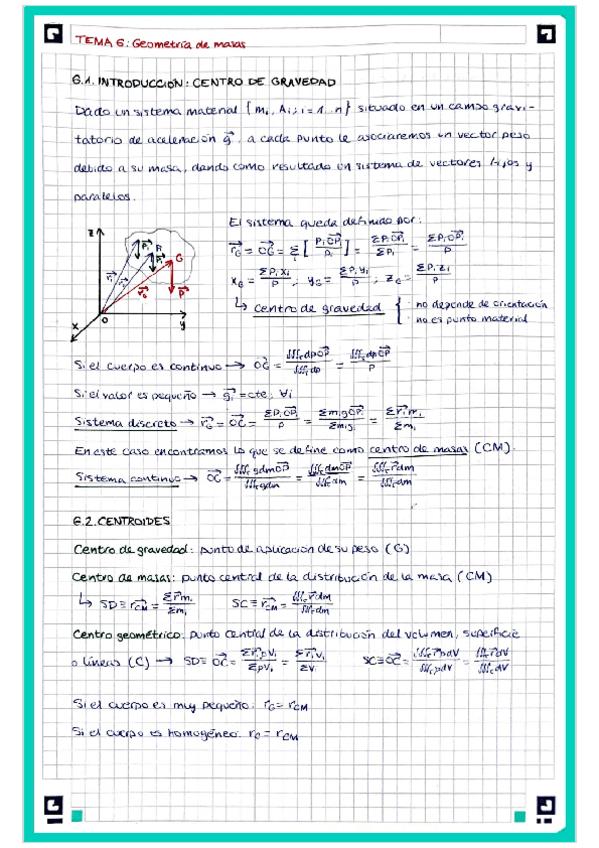 TEMA 6: Geometría de masas
6.1. INTRODUCCIÓN: CENTRO DE GRAVEDAD
Dado un sistema material {mi, Ai; i = 1...n} situado en un campo gravi-
tatorio de aceleración g⃗, a cada punto le asociaremos un vector peso
debido a su masa, dando como resultado un sistema de vectores fijos y
paralelos.
El sistema queda definido por:
r⃗G = OG⃗ = Σi [Pi OPi⃗ / Pi] = ΣPi OPi⃗ / ΣPi = ΣPi OPi⃗ / P
xG = ΣPi xi / P ; yG = ΣPi yi / P ; zG = ΣPi zi / P
↳ centro de gravedad { · no depende de orientación
· no es punto material
z P1⃗ Pi G P⃗ r⃗G O x y
Si el cuerpo es continuo → OG⃗ = ∭c dp OP⃗ / ∭c dp = ∭c dp OP⃗ / P
Si el valor es pequeño → g⃗i = cte, ∀i
Sistema discreto → r⃗G = OG⃗ = ΣPi OPi⃗ / P = Σmi g OPi⃗ / Σmi g = Σr⃗i mi / Σmi
En este caso encontramos lo que se define como centro de masas (CM).
Sistema continuo → OG⃗ = ∭c g dm OP⃗ / ∭c g dm = ∭c dm OP⃗ / ∭c dm = ∭c r⃗ dm / ∭c dm
6.2. CENTROIDES
Centro de gravedad: punto de aplicación de su peso (G)
Centro de masas: punto central de la distribución de la masa (CM)
↳ SD ≡ r⃗CM = Σr⃗i mi / Σmi SC ≡ r⃗CM = ∭c r⃗ dm / ∭c dm
Centro geométrico: punto central de la distribución del volumen, superficie
o líneas (C) → SD ≡ OC⃗ = Σr⃗i ρVi / ΣρVi = Σr⃗i Vi / ΣVi SC ≡ OC⃗ = ∭c r⃗ρdV / ∭c ρdV = ∭c r⃗dV / ∭c dV
Si el cuerpo es muy pequeño: rG = rCM
Si el cuerpo es homogéneo: rC = rCM